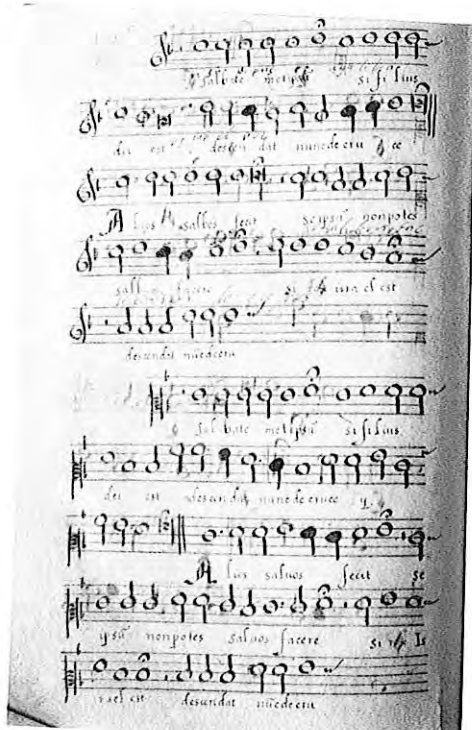 salbate metipsū si filius
dei est descēndat nunc de cru ce
A lios salbos fecit se ipsū non potes
salbos facere si ira el est
descendat nūc d cru
salbate metipsū si filius
dei est descendat nunc de cruce
A lios saluos fecit se
ypsū non potes saluos facere si Is
rael est descendat nūc d cru